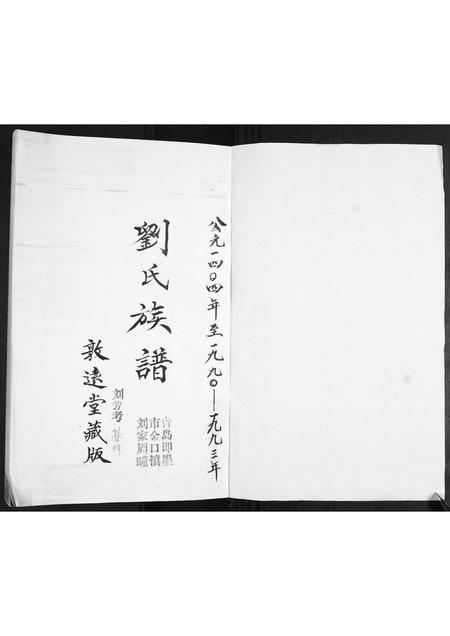 公元一四〇四年至一九九〇—一九九三年
劉氏族譜
青島即墨
市金口镇
刘家周疃
刘芳考
敦遠堂藏版